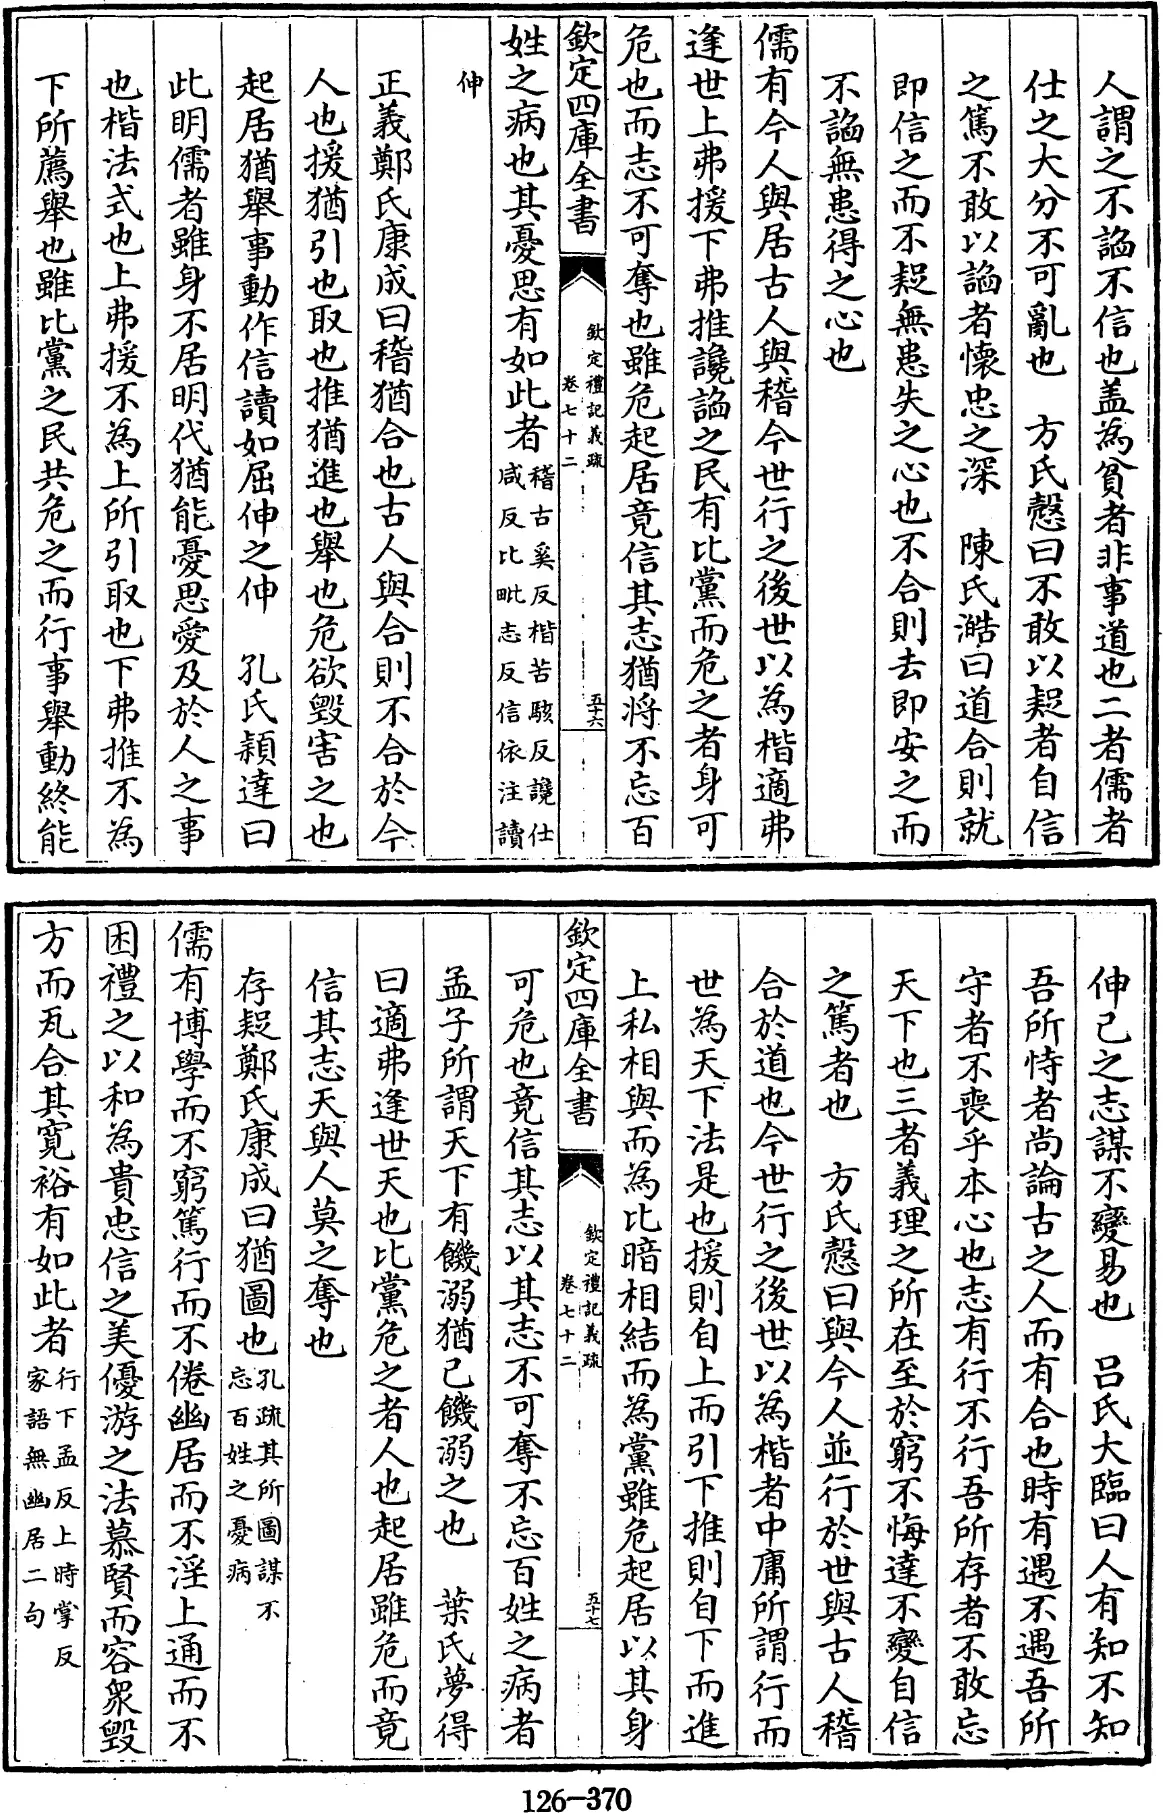 人謂之不謟不信也蓋為貧者非事道也二者儒者
仕之大分不可亂也　方氏慤曰不敢以疑者自信
之篤不敢以謟者懷忠之深　陳氏澔曰道合則就
即信之而不疑無患失之心也不合則去即安之而
不謟無患得之心也
儒有今人與居古人與稽今世行之後世以為楷適弗
逢世上弗援下弗推讒謟之民有比黨而危之者身可
危也而志不可奪也雖危起居竟信其志猶將不忘百
欽定四庫全書
欽定禮記義疏
卷七十二
五十六
姓之病也其憂思有如此者稽古奚反楷苦駭反讒仕
咸反比毗志反信依注讀
伸
正義鄭氏康成曰稽猶合也古人與合則不合於今
人也援猶引也取也推猶進也舉也危欲毀害之也
起居猶舉事動作信讀如屈伸之伸　孔氏穎達曰
此明儒者雖身不居明代猶能憂思愛及於人之事
也楷法式也上弗援不為上所引取也下弗推不為
下所薦舉也雖比黨之民共危之而行事舉動終能
伸己之志謀不變易也　呂氏大臨曰人有知不知
吾所恃者尚論古之人而有合也時有遇不遇吾所
守者不喪乎本心也志有行不行吾所存者不敢忘
天下也三者義理之所在至於窮不悔達不變自信
之篤者也　方氏慤曰與今人並行於世與古人稽
合於道也今世行之後世以為楷者中庸所謂行而
世為天下法是也援則自上而引下推則自下而進
上私相與而為比暗相結而為黨雖危起居以其身
欽定四庫全書
欽定禮記義疏
卷七十二
五十七
可危也竟信其志以其志不可奪不忘百姓之病者
孟子所謂天下有饑溺猶己饑溺之也　葉氏夢得
曰適弗逢世天也比黨危之者人也起居雖危而竟
信其志天與人莫之奪也
存疑鄭氏康成曰猶圖也孔疏其所圖謀不
忘百姓之憂病
儒有博學而不窮篤行而不倦幽居而不淫上通而不
困禮之以和為貴忠信之美優游之法慕賢而容眾毀
方而瓦合其寬裕有如此者行下孟反上時掌反
家語無幽居二句
126-370